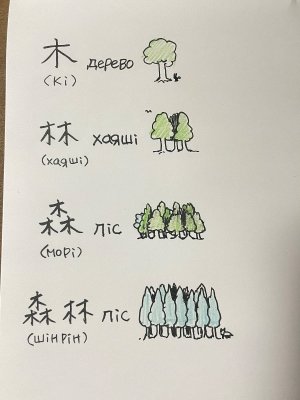 木 дерево
(кі)
林 хаяші
(хаяші)
森 ліс
(морі)
森林 ліс
(шінрін)